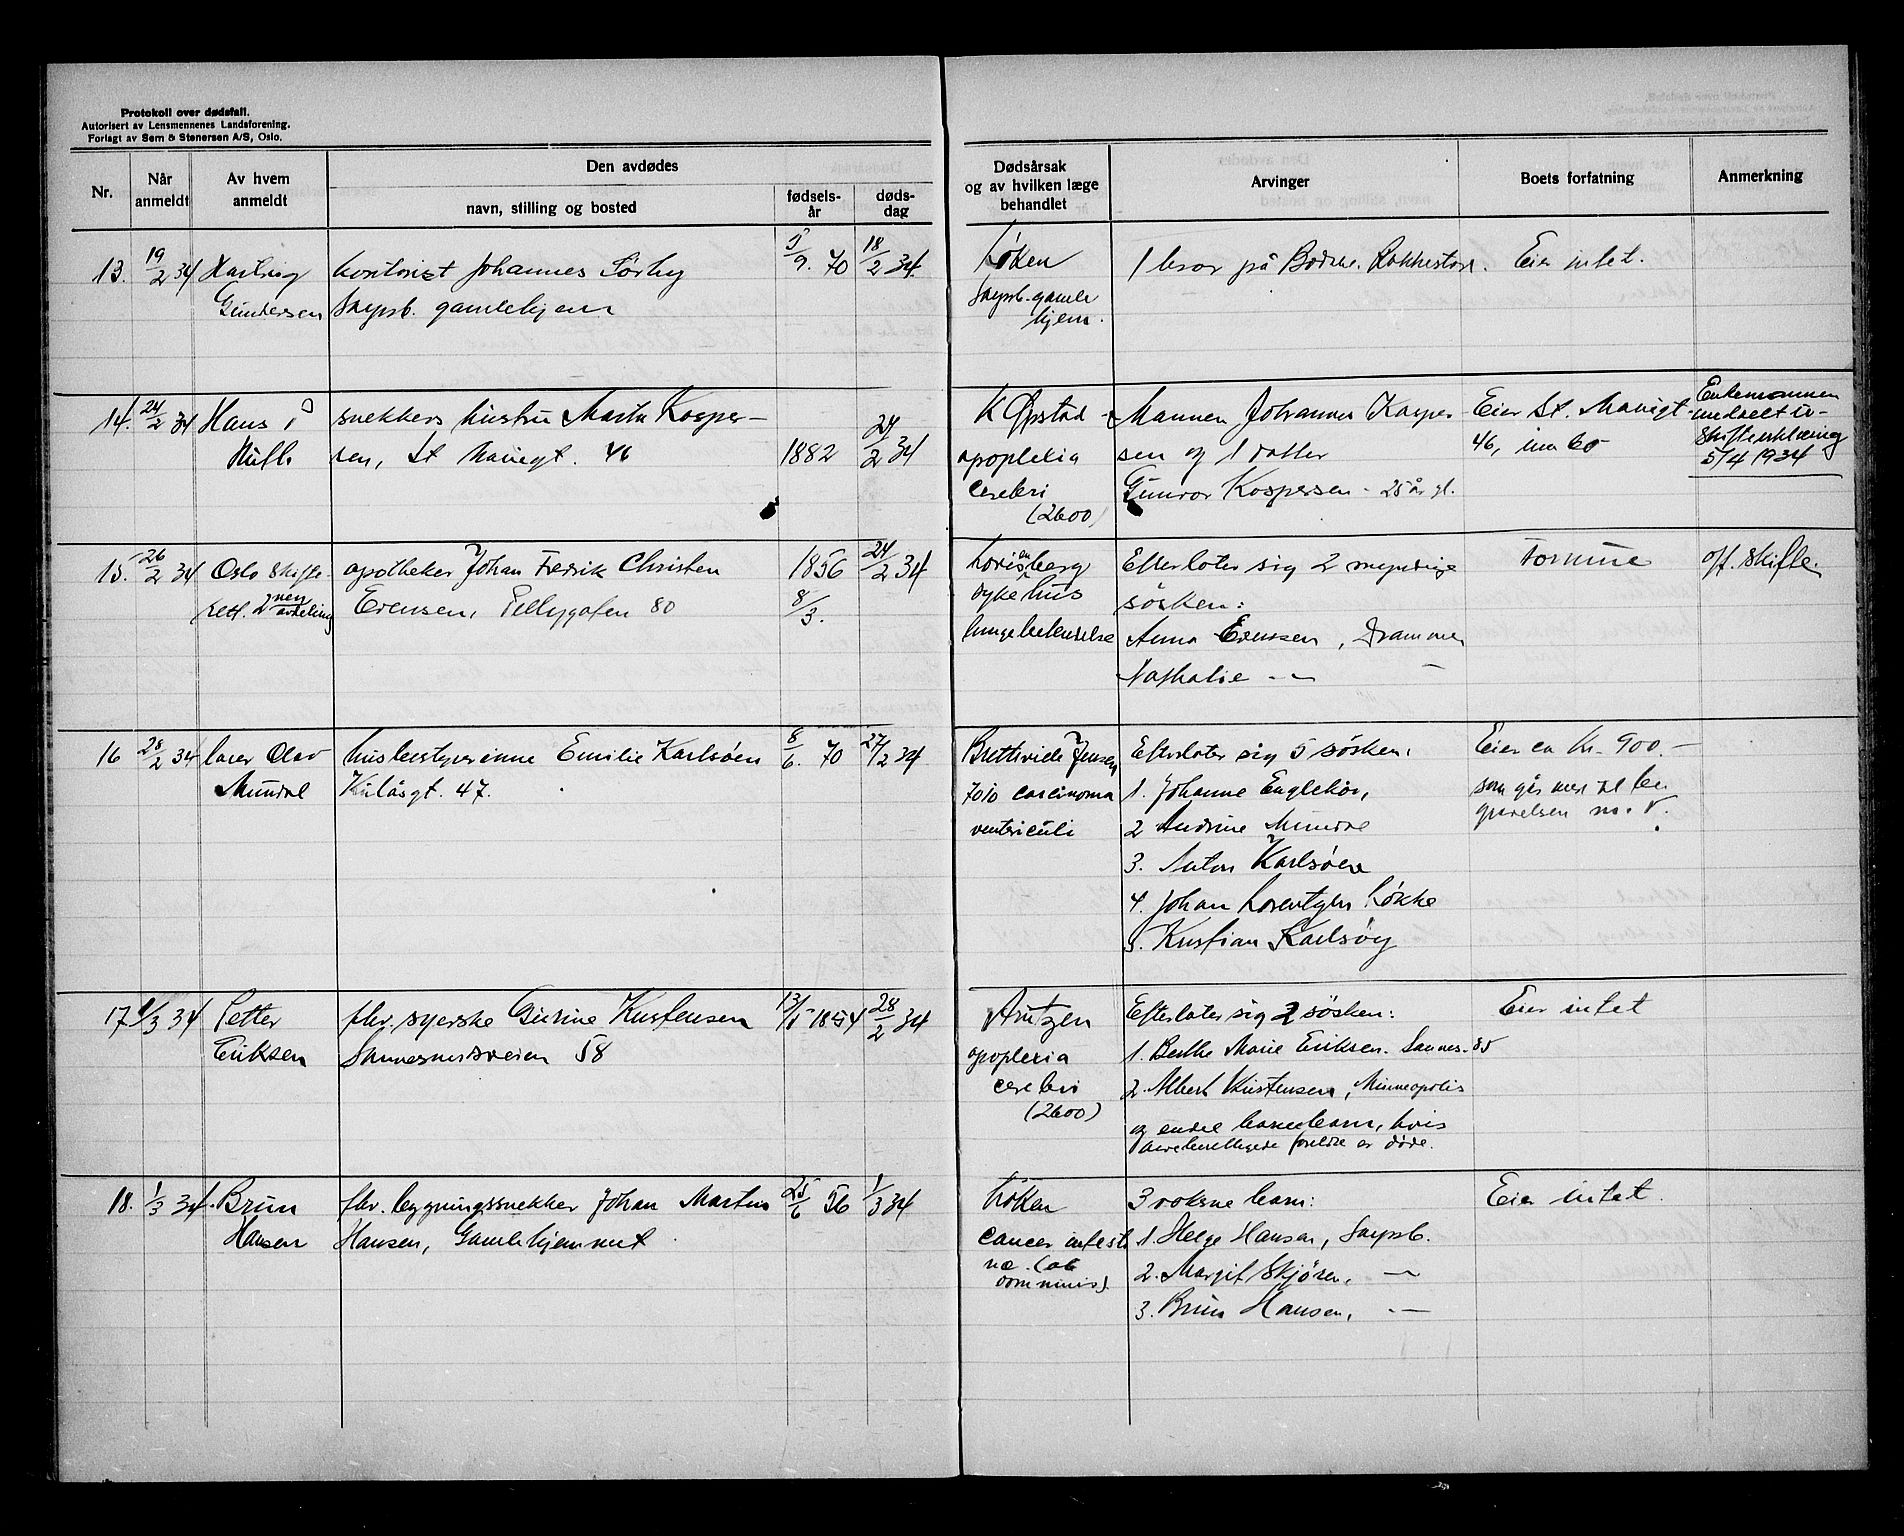 Protokoll over dødsfall.
Autorisert av Lensmennenes Landsforening.
Forlagt av Sem & Stenersen A/S, Oslo.
Nr.
Når anmeldt
Av hvem anmeldt
Den avdødes
navn, stilling og bosted
fødsels-år
døds-dag
Dødsårsak og av hvilken læge behandlet
Arvinger
Boets forfatning
Anmerkning
13. 19/2 34
Gundersen
kontorist Johannes
Sarpsb. gamlehjem
5/9. 70
18/2 34.
Løken
Sarpsb. gamle
hjem.
1 bror på
Eier intet.
14. 24/2 34
Hans
snekkers hustru Marta Kasper-
sen, St. Mariegt. 46
1882
24/2 34
K Opstad
apoplexia
cerebri
(2600)
Mannen Johannes Kasper
sen og 1 datter
Gunvor Kaspersen - 25 år gl.
Eier St. Mariegt
46, innbo
Enkemannen
meddelt u-
skifteerklæring
5/4 1934
15. 26/2 34
Oslo skifte-
rett. 2nen avdeling
apotheker Johan Fredrik Christen
Evensen, 80
1856
8/3.
24/2 34
Lovisenberg
sykehus
lungebetendelse
Efterlater sig 2 myndige
søsken:
Anna Evensen, Drammen
Nathalie - " -
Formue
off. skifte.
16 28/2 34
Olav
Mundal
husbestyrerinne Emilie Karlsøen
Kulåsgt. 47.
8/6. 70
27/2 34
Jensen
carcinoma
ventriculi
Efterlater sig 5 søsken:
1. Johanne
2 Andrine
3. Anton Karlsøen
4. Johan Løkke
5. Kristian Karlsøy
Eier ca kr. 900.-
som går med til be-
gravelsen m. v.
17 1/3 34
Petter
Eriksen
fhv. syerske Gurine Kristensen
Sannesundsveien 58
13/5 1854
28/2 34
Arntzen
apoplexia
cerebri
(2600)
Efterlater sig 2 søsken:
1. Berthe Marie Eriksen. Sannes. 85
2. Albert Kristensen, Minneapolis
og endel barnebarn, hvis
arveberettigede foreldre er døde.
18. 1/3 34.
Brun
Hansen
fhv. bygningssnekker Johan Martin
Hansen, Gamlehjemmet
25/6 56
1/3 34
Løken
cancer intesti
næ. (ab
domminis).
3 voksne barn:
1. Helge Hansen, Sarpsb.
2. Margit Skjøren, - " -
3. Brun Hansen, - " -
Eier intet.